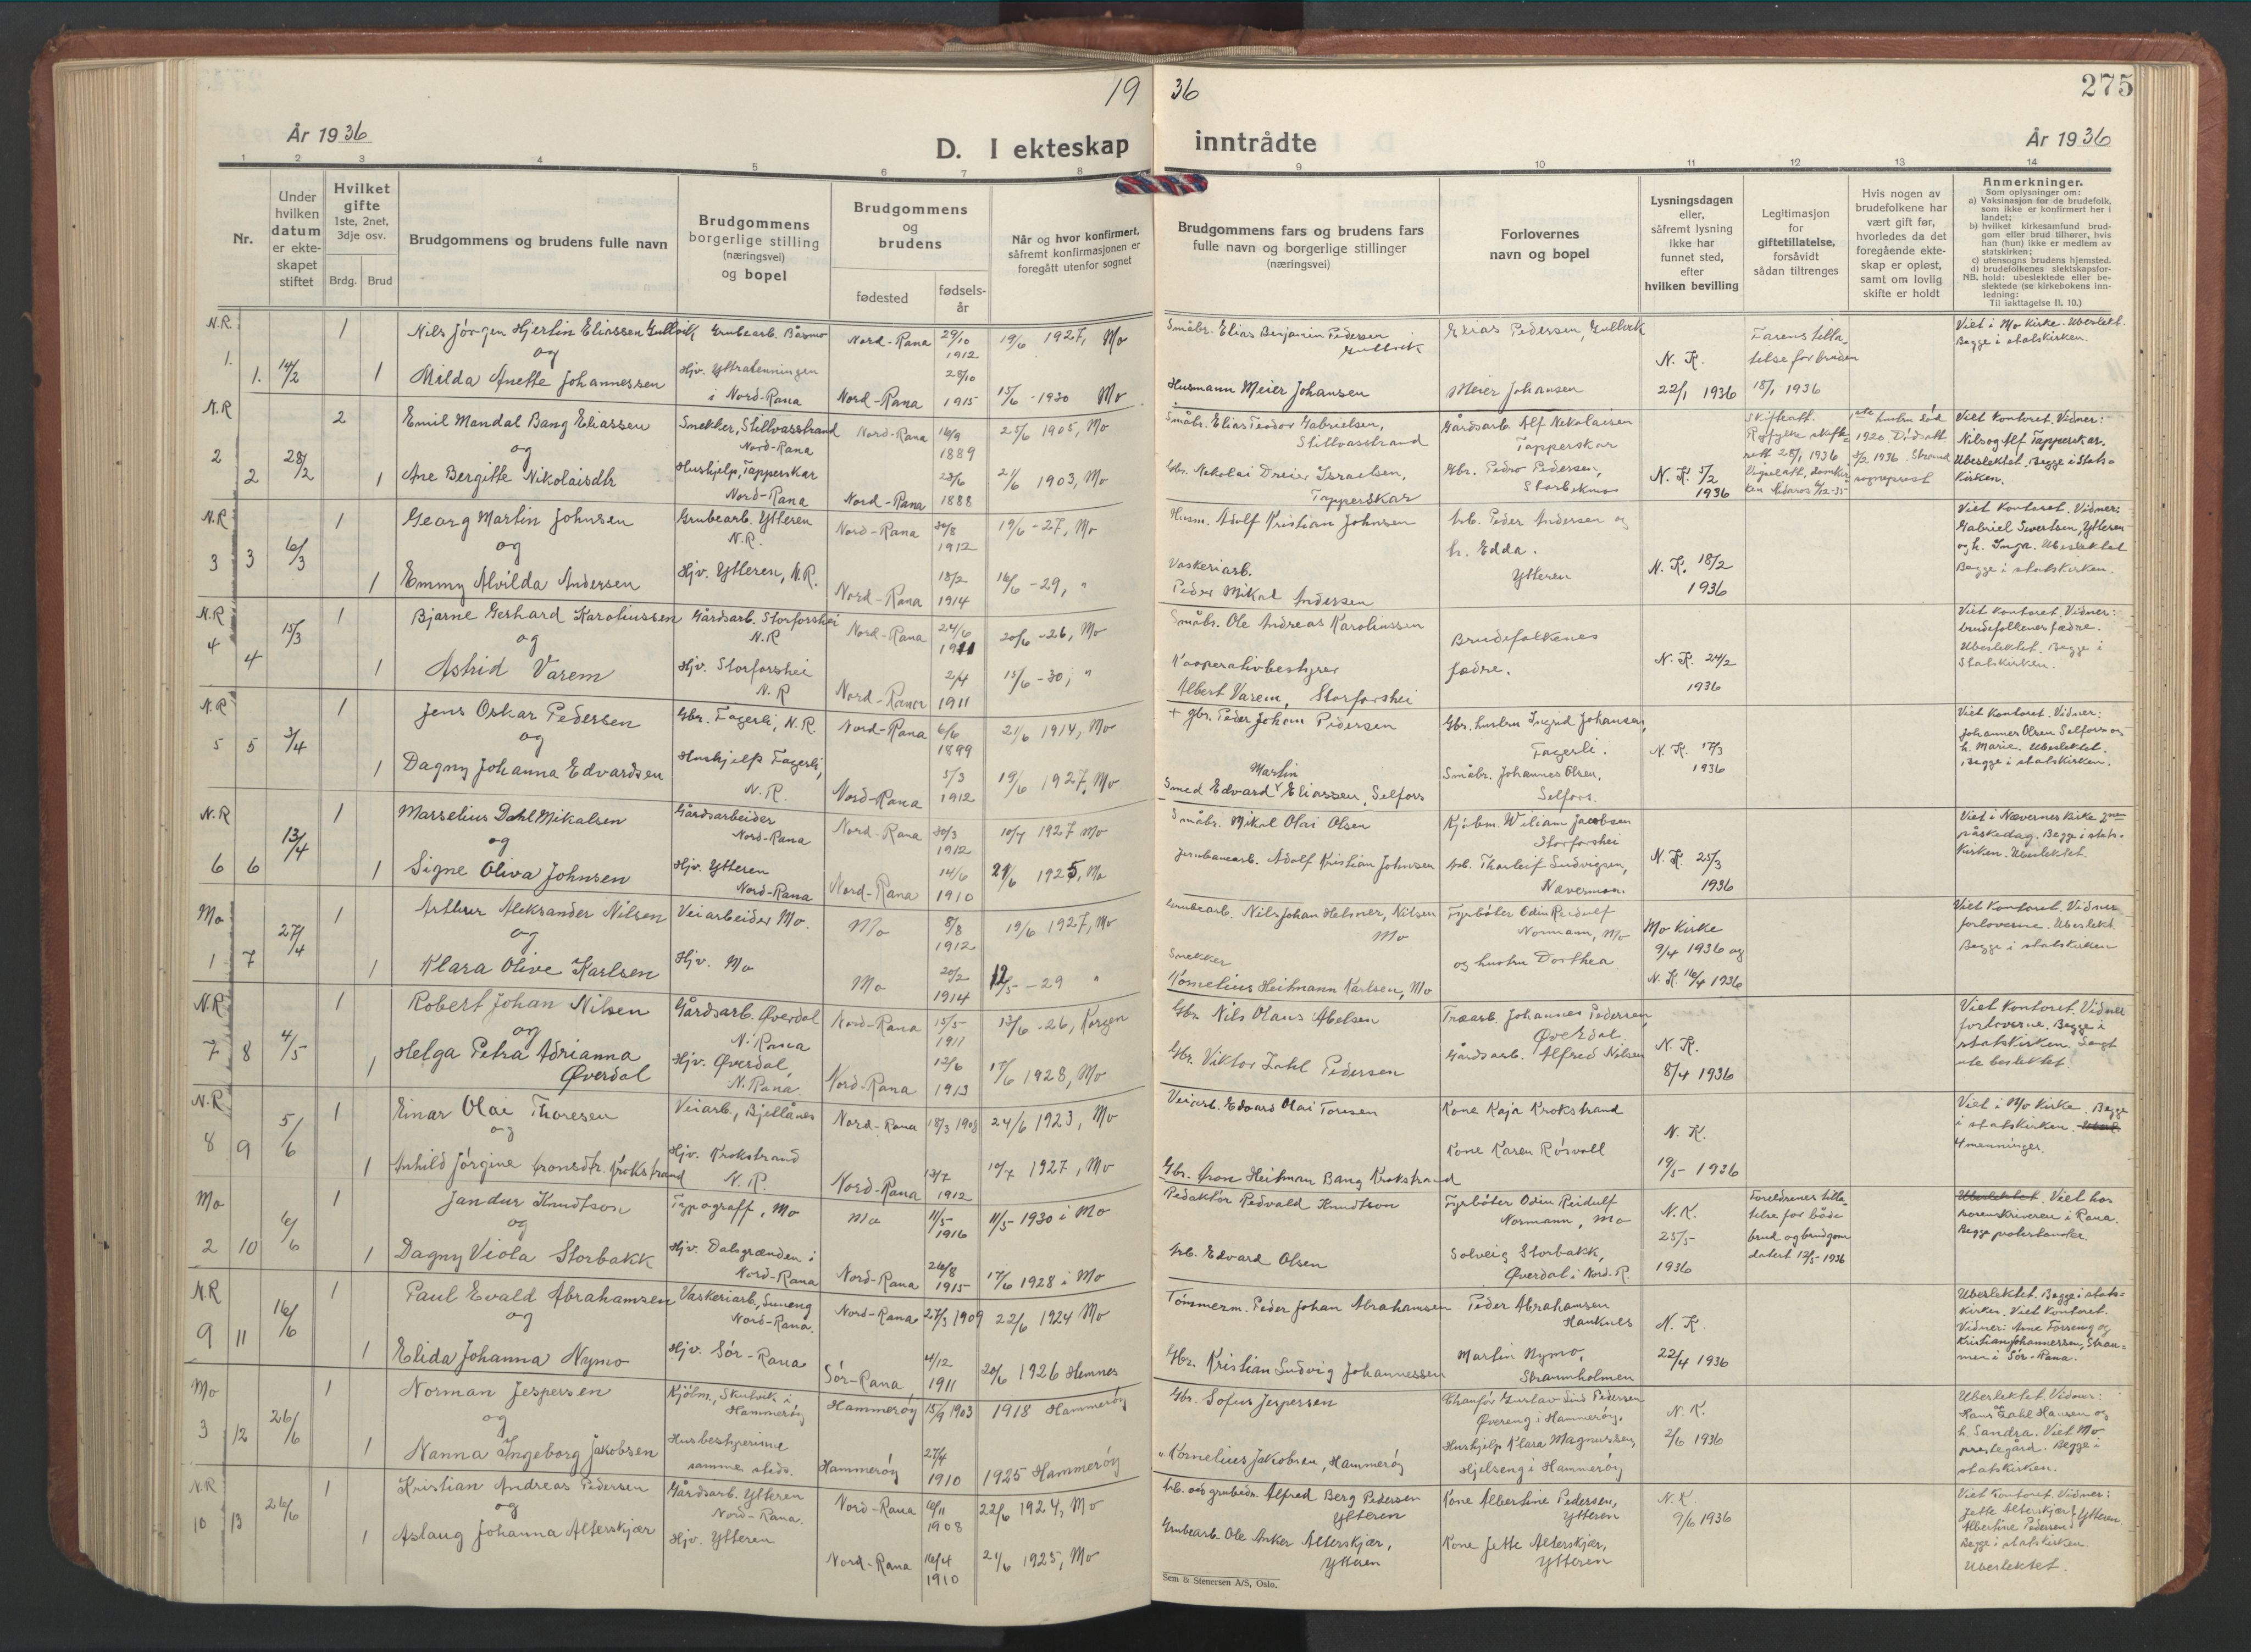 19 36
275
År 1936
D. I ekteskap inntrådte
År 1936
1 2 3 4 5 6 7 8 9 10 11 12 13 14
Nr.
Under hvilken datum er ekteskapet stiftet
Hvilket gifte
1ste, 2net, 3dje osv.
Brdg. Brud
Brudgommens og brudens fulle navn
Brudgommens borgerlige stilling (næringsvei) og bopel
Brudgommens og brudens
fødested
fødselsår
Når og hvor konfirmert, såfremt konfirmasjonen er foregått utenfor sognet
Brudgommens fars og brudens fars fulle navn og borgerlige stillinger (næringsvei)
Forlovernes navn og bopel
Lysningsdagen eller, såfremt lysning ikke har funnet sted, efter hvilken bevilling
Legitimasjon for giftetillatelse, forsåvidt sådan tiltrenges
Hvis nogen av brudefolkene har vært gift før, hvorledes da det foregående ekteskap er opløst, samt om lovlig skifte er holdt
Anmerkninger.
Som oplysninger om:
a) Vaksinasjon for de brudefolk, som ikke er konfirmert her i landet;
b) hvilket kirkesamfund brudgom eller brud tilhører, hvis han (hun) ikke er medlem av statskirken;
c) utensogns brudens hjemsted.
d) brudefolkenes slektskapsforhold: ubeslektede eller beslektede (se kirkebokens innledning:
NB. Til iakttagelse II, 10.)
N.R. 1. 1. 14/2 1 Nils Jörgen Hjertin Eliassen Gullvik Grubearb. Båsmo Nord-Rana 29/10 1912 19/6 1927, Mo Småbr. Elias Benjamin Pedersen Gullvik Elias Pedersen, Gullvik
og
1 Milda Anette Johannessen Hjv. Ytteren i Nord-Rana Nord-Rana 28/10 1915 15/6 - 1930 Mo Husmann Meier Johansen Meier Johansen N. K. 22/1 1936 Farens tillatelse for bruden 18/1 1936 Viet i Mo kirke. Ubeslekt. Begge i statskirken.
N.R 2 2 28/2 2 Emil Mandal Bang Eliassen Snekker, Stillvasstrand Nord-Rana Nord-Rana 16/9 1889 25/6 1905, Mo Småbr. Elias Teodor Gabrielsen, Stillvasstrand Gårdsarb. Alf Nikolaisen Tapperskar
og
1 Ane Bergitte Nikolaisdtr Hushjelp, Tapperskar Nord-Rana Nord-Rana 23/6 1888 21/6 1903, Mo Gbr. Nikolai Dreier Israelsen, Tapperskar Gbr. Pedro Pedersen, N. K. 5/2 1936 Viet Kontoret. Vidner: Nils og Alf Tapperskar. Ubeslektet. Begge i Statskirken.
N.R 3 3 6/3 1 Georg Martin Johnsen Grubearb. Ytteren N.R. Nord-Rana 30/8 1912 19/6 - 27, Mo Husm. Adolf Kristian Johnsen Arb. Peder Andersen og h. Edda. Ytteren
og
1 Emmy Alvilda Andersen Hjv. Ytteren, N.R. Nord-Rana 18/2 1914 16/6 - 29, " Vaskeriarb. Peder Mikal Andersen N. K. 18/2 1936 Viet Kontoret. Vidner: Gabriel Sivertsen, Ytteren og h. Inga. Ubeslektet Begge i statskirken.
N.R 4 4 15/3 1 Bjarne Gerhard Karoliussen Gårdsarb. Storforshei N.R Nord-Rana 24/6 1911 20/6 - 26, Mo Småbr. Ole Andreas Karoliussen Brudefolkenes fædre.
og
1 Astrid Varem Hjv. Storforshei N.R Nord-Rana 2/4 1911 15/6 - 30, " Kooperativbestyrer Albert Varem, Storforshei N. K. 24/2 1936 Viet Kontoret. Vidner: brudefolkenes fædre. Ubeslektet. Begge i Statskirken.
N.R 5 5 3/4 1 Jens Oskar Pedersen Gbr. Fagerli, N.R. Nord-Rana 6/6 1899 21/6 1914, Mo + Gbr. Peder Johan Pedersen Gbr. hustru Ingrid Johansen, Fagerli.
og
1 Dagny Johanna Edvardsen Hushjelp Fagerli, N.R. Nord-Rana 5/3 1912 19/6 1927, Mo Smed Edvard Martin Eliassen, Selfors Småbr. Johannes Olsen, Selfors. N. K. 17/3 1936 Viet Kontoret. Vidner: Johannes Olsen Selfors og h. Marie. Ubeslektet. Begge i statskirken.
N.R 6 6 13/4 1 Marselius Dahl Mikalsen Gårdsarbeider Nord-Rana Nord-Rana 30/3 1912 10/7 1927 Mo Småbr. Mikal Olai Olsen Kjöbm. Wiliam Jacobsen Storforshei
og
1 Signe Oliva Johnsen Hjv. Ytteren Nord-Rana Nord-Rana 14/6 1910 21/6 1925, Mo Jernbanearb. Adolf Kristian Johnsen Arb. Thorleif Ludvigsen, Nævermoen N. K. 25/3 1936 Viet i Nævernes kirke 2nen påskedag. Begge i statskirken. Ubeslektet.
Mo 1 7 27/4 1 Arthur Aleksander Nilsen Veiarbeider Mo. Mo 8/8 1912 19/6 1927, Mo Grubearb. Nils Johan Helmer, Nilsen Mo Fyrböter Odin Reidulf Normann, Mo
og
1 Klara Olive Karlsen Hjv. Mo Mo 20/2 1914 12/5 - 29 " Snekker Kornelius Heitmann Karlsen, Mo og hustru Dorthea Mo Kirke 9/4 1936 og N. K. 16/4 1936 Viet Kontoret. Vidner forloverne. Ubeslekt. Begge i statskirken
N.R 7 8 4/5 1 Robert Johan Nilsen Gårdsarb. Øverdal N. Rana Nord-Rana 15/5 1911 13/6 - 26, Korgen Gbr. Nils Olaus Abelsen Træarb. Johannes Pedersen, Øverdal.
og
1 Helga Petra Adrianna Øverdal Hjv. Øverdal, N. Rana Nord-Rana 12/6 1913 17/6 1928, Mo Gbr. Viktor Zahl Pedersen Gårdsarb. Alfred Nilsen N. K. 8/4 1936 Viet Kontoret. Vidner forloverne. Begge i statskirken. Langt ute beslektet.
N.R 8 9 5/6 1 Einar Olai Thoresen Veiarb., Bjellånes Nord-Rana 18/3 1908 24/6 1923, Mo Veiarb. Edvard Olai Toresen Kone Kaja Krokstrand
og
1 Anhild Jörgine Aronsdtr. Krokstrand Hjv. Krokstrand N.R. Nord-Rana 13/7 1912 10/7 1927, Mo Gbr. Aron Heitman Bang Krokstrand Kone Karen Rösvoll N. K. 19/5 - 1936 Viet i Mo Kirke. Begge i statskirken. 4 menninger.
Mo 2 10 6/6 1 Jandur Knudtson Typograff, Mo Mo 11/5 1916 11/5 - 1930 i Mo Redaktör Redvald Knudtson Fyrböter Odin Reidulf Normann, Mo
og
1 Dagny Viola Storbakk Hjv. Dalsgrænden i Nord-Rana Nord-Rana 26/8 1915 17/6 1928 i Mo Arb. Edvard Olsen Solveig Storbakk, Øverdal i Nord-R. N.K. 25/5- 1936 Foreldrenes tillatelse for både brud og brudgom datert 12/5-1936 Ubeslektet. Viet hos sorenskriveren i Rana. Begge protestanter.
N.R 9 11 16/6 1 Paul Evald Abrahamsen Vaskeriarb., Nord-Rana. Nord-Rana 27/3 1909 22/6 1924 Mo Tömmerm. Peder Johan Abrahamsen Peder Abrahamsen Hauknes
og
1 Elida Johanna Nymo Hjv. Sör-Rana Sör-Rana 4/12 1911 20/6 1926 Hemnes Gbr. Kristian Ludvig Johannessen Martin Nymo, Straumholmen N. K. 22/4 1936 Ubeslektet. Begge i statskirken. Viet Kontoret. Vidner: Arne Forseng og Kristian Johannessen, i Sör-Rana.
Mo 3 12 26/6 1 Norman Jespersen Kjöbm., Skutvik i Hammeröy Hammeröy 15/9 1903 1918 Hammeröy Gbr. Sofus Jespersen Chauför Gustav Lind Pedersen Övereng i Hammeröy,
og
1 Nanna Ingeborg Jakobsen Husbestyrerinne samme steds. Hammeröy 27/4 1910 1925 Hammeröy " Kornelius Jakobsen, Hammeröy Hushjelp Klara Magnussen, Hjelseng i Hammeröy N. K. 2/6 1936 Ubeslektet. Vidner: Hans Zahl Hansen og h. Sandra. Viet Mo prestegård. Begge i statskirken.
N.R 10 13 26/6 1 Kristian Andreas Pedersen Gårdsarb. Ytteren Nord-Rana. Nord-Rana 6/11 1908 22/6 1924, Mo Arb. og grubedr. Alfred Berg Pedersen Ytteren Kone Albertine Pedersen, Ytteren
og
1 Aslaug Johanna Alterskjær Hjv. Ytteren Nord-Rana 16/4 1910 21/6 1925, Mo Grubearb. Ole Anker Alterskjær, Ytteren Kone Jette Alterskjær, Ytteren N. K. 9/6 1936 Viet Kontoret. Vidner: Jette Alterskjær Albertine Pedersen } Ytteren. Begge i statskirken. Ubeslektet.
Sem & Stenersen A/S, Oslo.